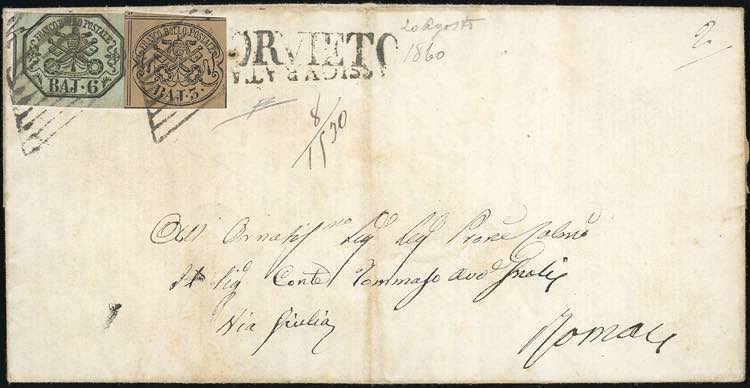 FRANCO BOLLO POSTALE
BAJ·6
FRANCO BOLLO POSTALE
BAJ·3·
ORVIETO
ASSICURATA
20 Agosto
1860
2
8/1530
All' Ornatiss mo Sig Sig Prone Colmo
Il Sig Conte Tommaso avv Gnoli
Via Giulia
Roma